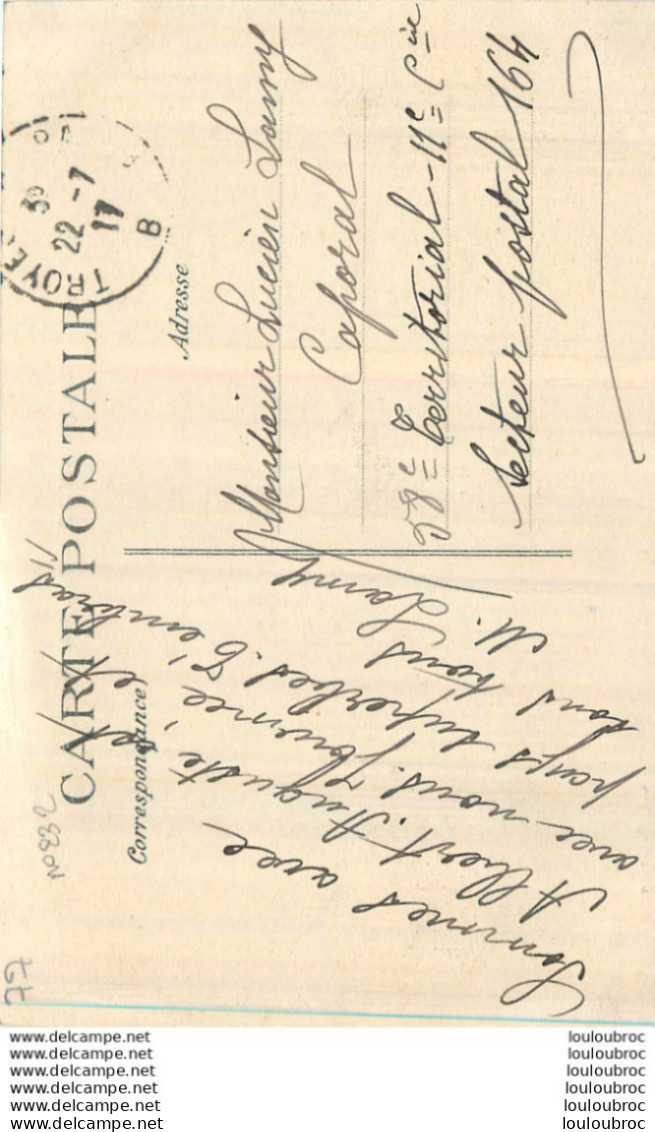 CARTE POSTALE
Correspondance
Adresse
TROYES
22 - 7
17
B
Sommes avec
Albert. Auguste, et
avec nous. Journée et
pays superbes. T'embrass
tous tous
M. Lamy
Monsieur Lucien Lamy
Caporal
58e Territorial - 11e Cie
Secteur postal 164
77
no 232
www.delcampe.net
www.delcampe.net
www.delcampe.net
www.delcampe.net
www.delcampe.net
www.delcampe.net
louloubroc
louloubroc
louloubroc
louloubroc
louloubroc
louloubroc